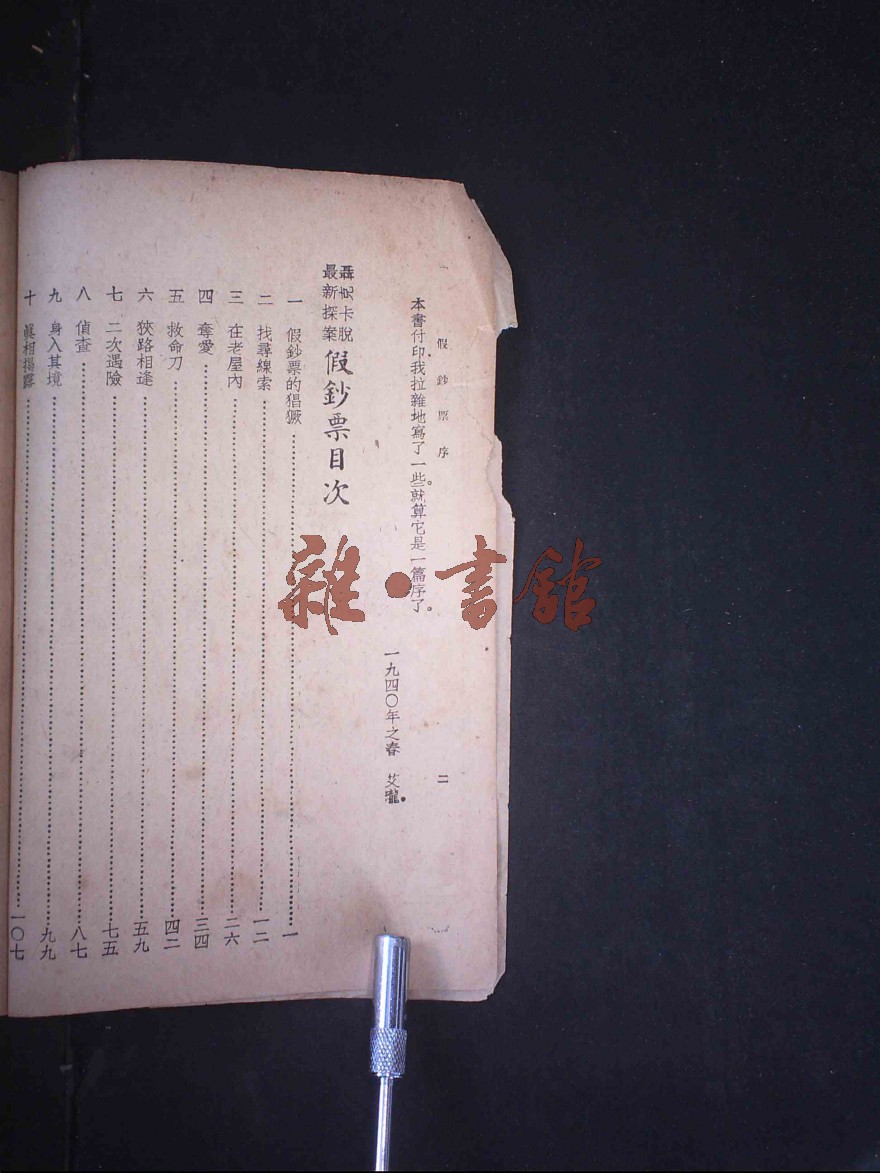 假鈔票序 二
本書付印，我拉雜地寫了一些。就算它是一篇序了。
一九四〇年之春 艾瓏。
聶克卡脫
最新探案
假鈔票目次
一 假鈔票的猖獗 一
二 找尋線索 一二
三 在老屋內 二六
四 奪愛 三四
五 救命刀 四二
六 狹路相逢 五九
七 二次遇險 七五
八 偵查 八七
九 身入其境 九九
十 眞相揭露 一〇七
雜·書館